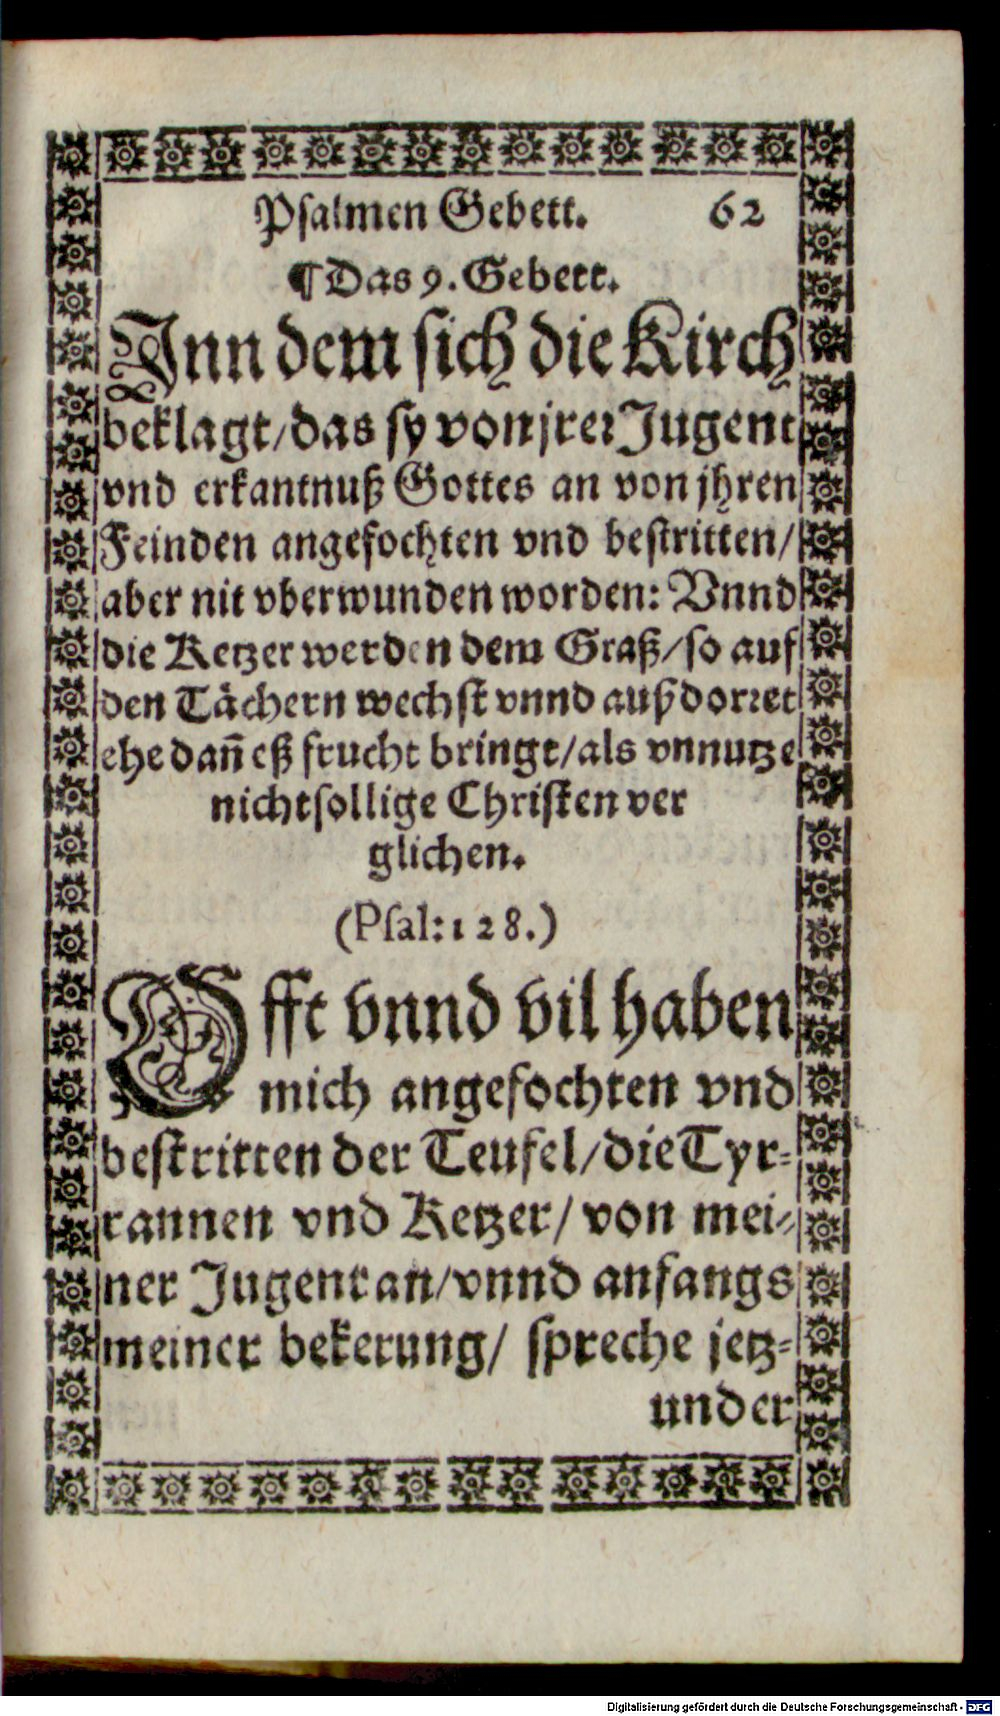 Psalmen Gebett. 62
¶ Das 9. Gebett.
Inn dem sich die Kirch
beklagt/ das sy von jrer Jugent
vnd erkantnuß Gottes an von jhren
Feinden angefochten vnd bestritten/
aber nit vberwunden worden: Vnnd
die Ketzer werden dem Graß/ so auf
den Tächern wechst vnnd außdorret
ehe dañ eß frucht bringt/ als vnnutze
nichtsollige Christen ver
glichen.
(Psal: 128.)
Offt vnnd vil haben
mich angefochten vnd
bestritten der Teufel/ die Tyr-
rannen vnd Ketzer/ von mei-
ner Jugent an/ vnnd anfangs
meiner bekerung/ spreche jetz-
under
Digitalisierung gefördert durch die Deutsche Forschungsgemeinschaft - DFG